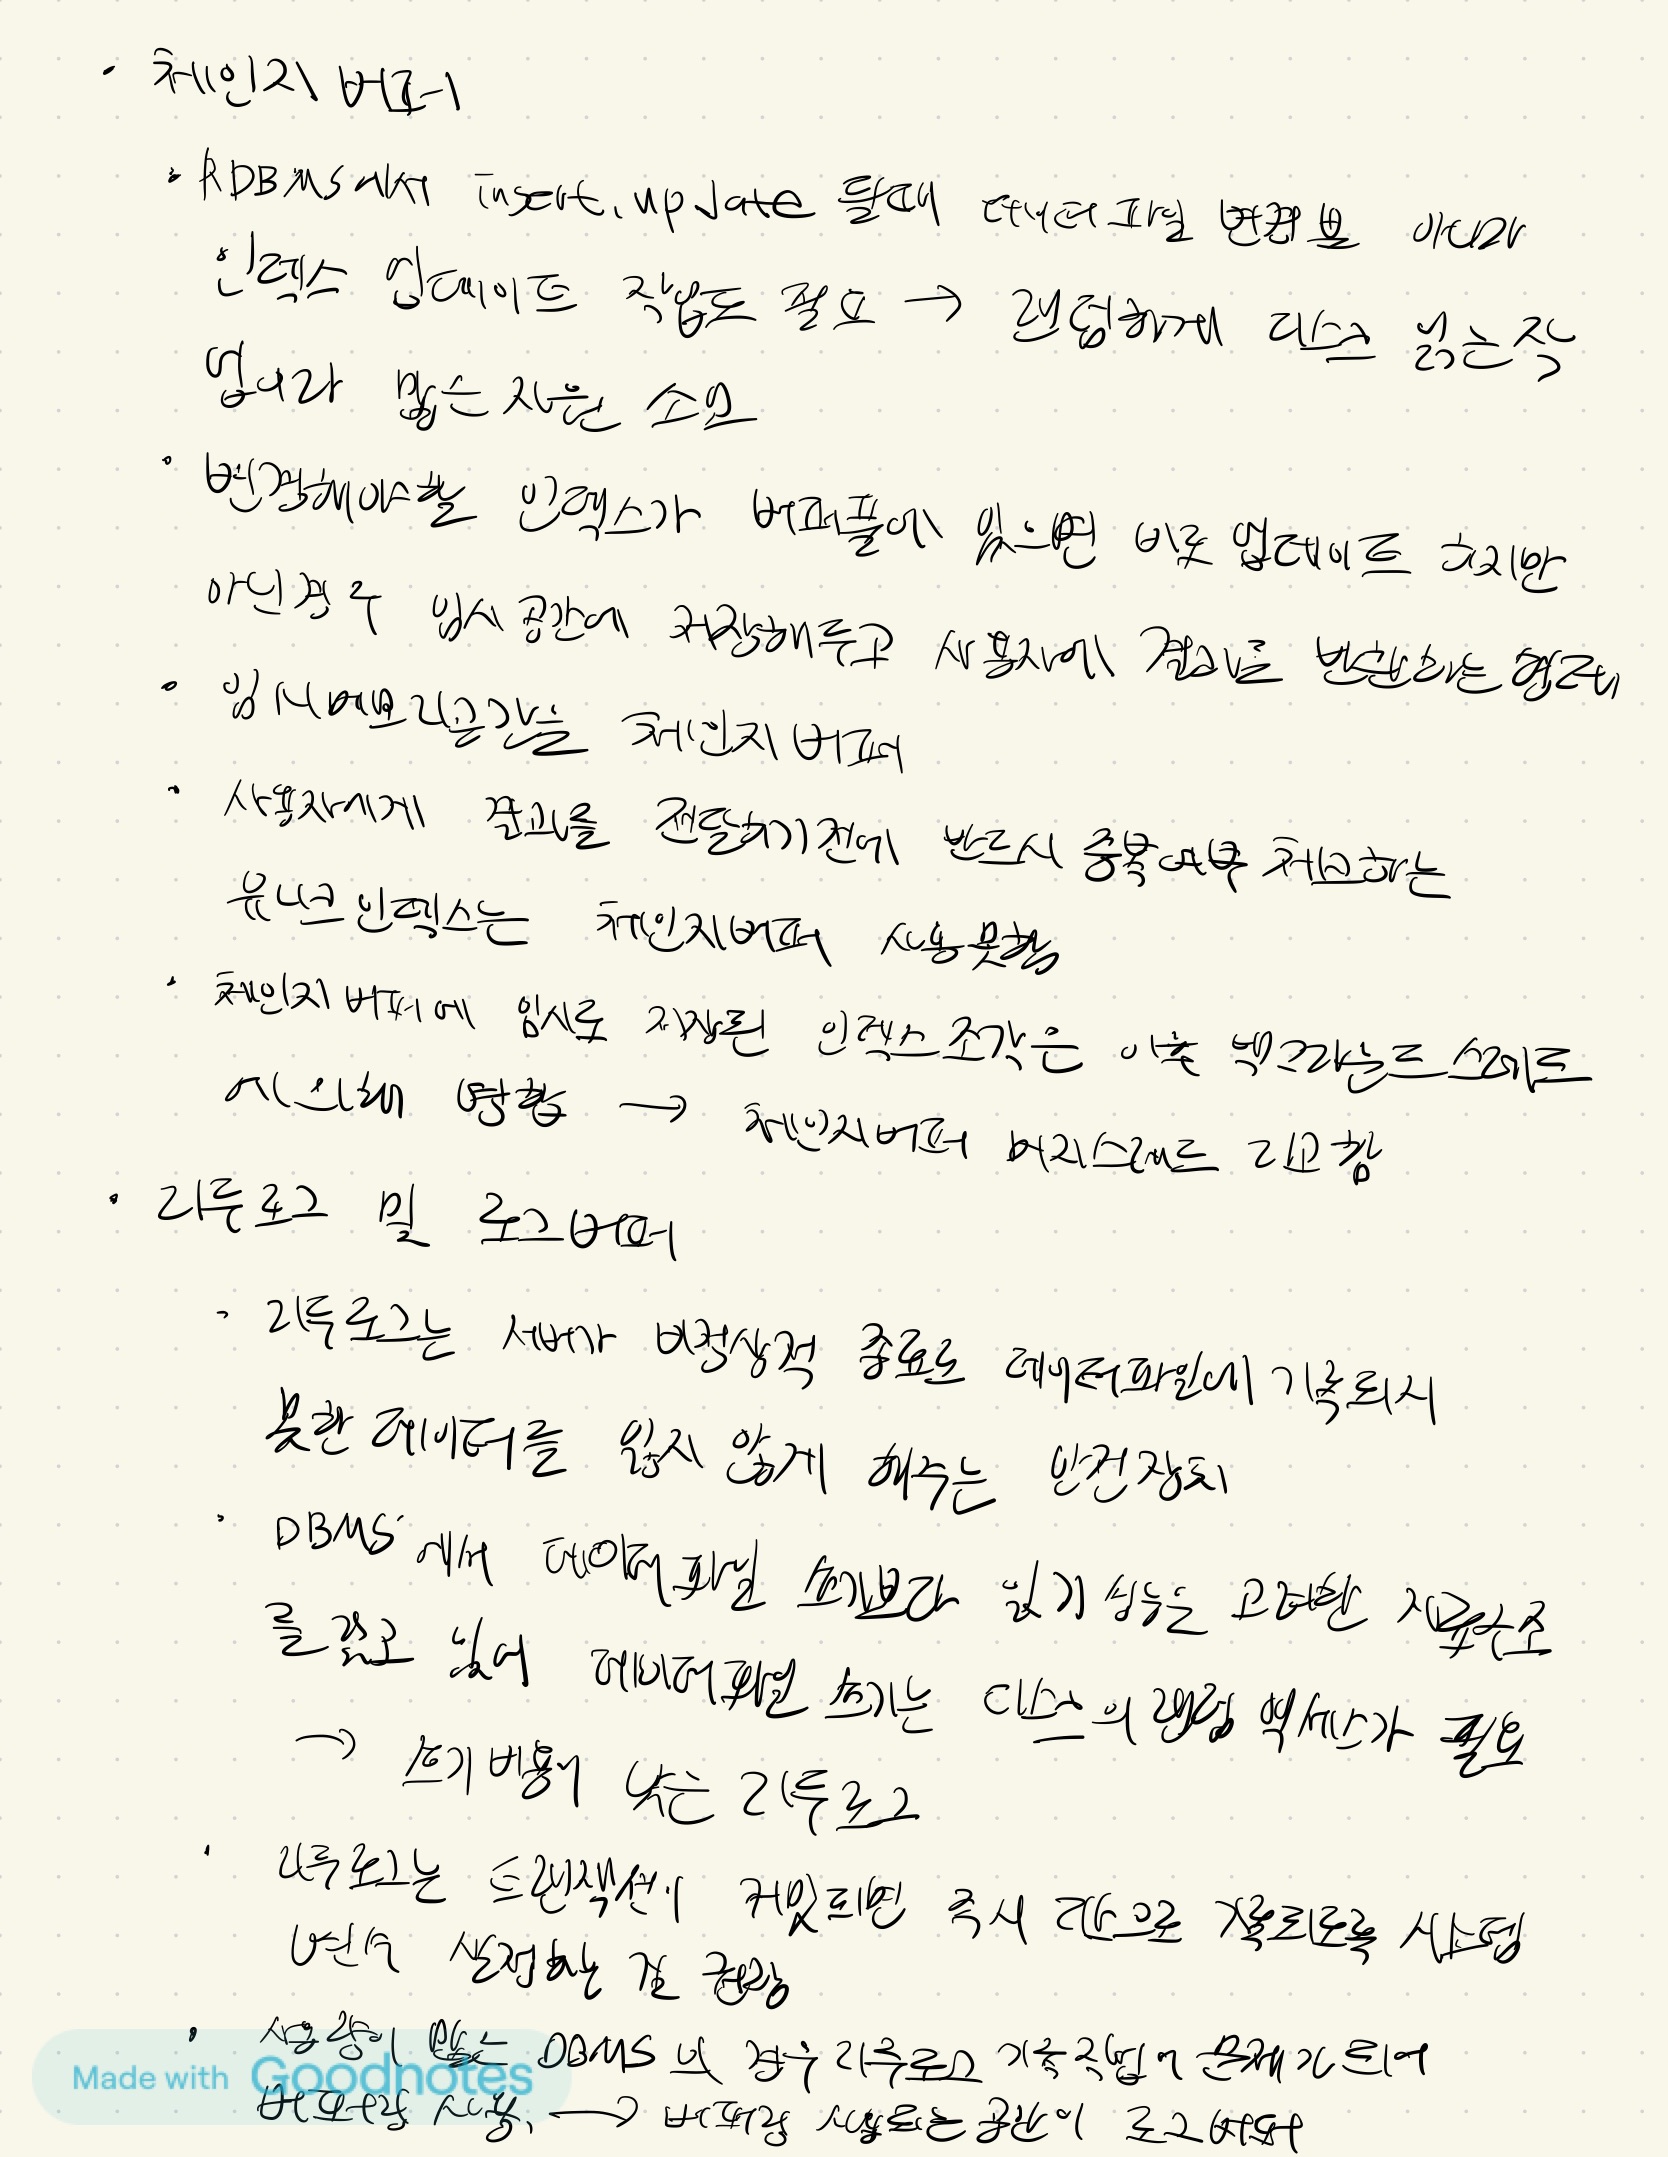 · 체인지 버퍼
· RDBMS에서 insert, update 될때 데이터파일 변경뿐 아니라
인덱스 업데이트 작업도 필요 → 랜덤하게 디스크 읽는작
업이라 많은 자원 소모
· 변경해야할 인덱스가 버퍼풀에 있으면 바로 업데이트 하지만
아닌경우 임시공간에 저장해두고 사용자에 결과를 반환하는 형태
· 임시메모리공간을 체인지버퍼
· 사용자에게 결과를 전달하기전에 반드시 중복여부 체크하는
유니크 인덱스는 체인지버퍼 사용못함
· 체인지버퍼에 임시로 저장된 인덱스조각은 이후 백그라운드 스레드
에 의해 병합 → 체인지버퍼 머지스레드 라고함
· 리두로그 및 로그버퍼
· 리두로그는 서버가 비정상적 종료로 데이터파일에 기록되지
못한 데이터를 잃지 않게 해주는 안전장치
· DBMS에서 데이터파일 쓰기보다 읽기 성능을 고려한 자료구조
를 갖고 있어 데이터파일 쓰기는 디스크의 랜덤 엑세스가 필요
→ 쓰기 비용이 낮은 리두로그
· 리두로그는 트랜잭션이 커밋되면 즉시 디스크로 기록되도록 시스템
변수 설정하는 걸 권장
· 사용량이 많은 DBMS의 경우 리두로그 기록작업이 문제가 되어
버퍼링 사용, → 버퍼링 사용되는 공간이 로그버퍼
Made with Goodnotes